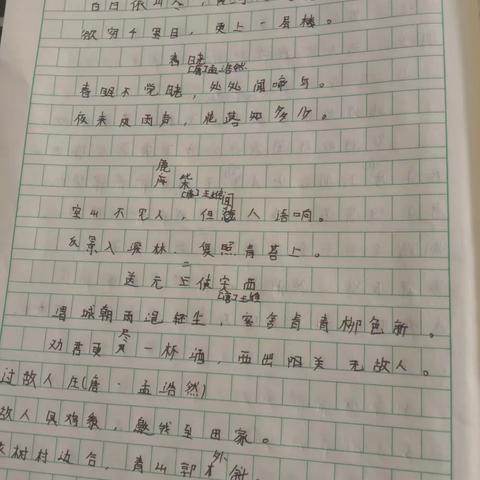 白日依山尽，
欲穷千里目，更上一层楼。
春晓
[唐]孟浩然
春眠不觉晓，处处闻啼鸟。
夜来风雨声，花落知多少。
鹿
柴
[唐]王维
空山不见人，但闻人语响。
反景入深林，复照青苔上。
送元二使安西
[唐]王维
渭城朝雨浥轻尘，客舍青青柳色新。
劝君更尽一杯酒，西出阳关无故人。
过故人庄(唐·孟浩然)
故人具鸡黍，邀我至田家。
树村边合，青山郭外斜。